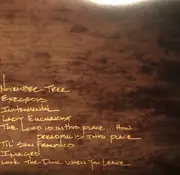 November Tree
Exegesis
Instrumental
Lady Eucharist
The Lord is in this place... How
dreadful is this place
'Til San Francisco
Images
Lock the Door When You Leave